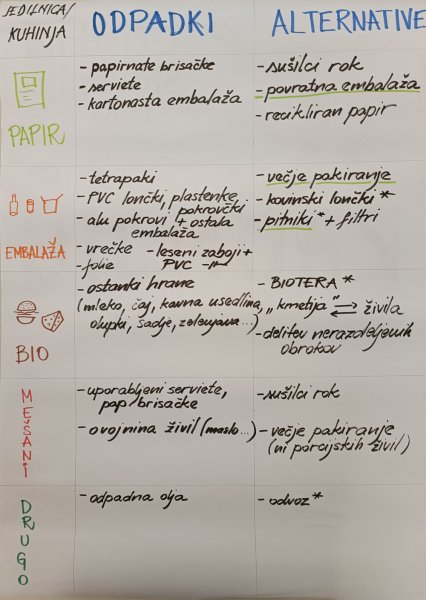 JEDILNICA/
KUHINJA
ODPADKI
ALTERNATIVE
PAPIR
- papirnate brisačke
- serviete
- kartonasta embalaža
- sušilci rok
- povratna embalaža
- recikliran papir
EMBALAŽA
- tetrapaki
- PVC lončki, plastenke,
pokrovčki
- alu pokrovi + ostala
embalaža
- vrečke - leseni zaboji +
- folie PVC -11-
- večje pakiranje
- kovinski lončki *
- pitniki * + filtri
BIO
- ostanki hrane
(mleko, čaj, kavna usedlina,
olupki, sadje, zelenjava...)
- BIOTERA *
- "kmetija" ⇄ živila
- delitev nerazdeljenih
obrokov
MEŠANI
- uporabljeni serviete,
pap. brisačke
- ovojnina živil (maslo...)
- sušilci rok
- večje pakiranje
(ni porcijskih živil)
DRUGO
- odpadna olja
- odvoz *